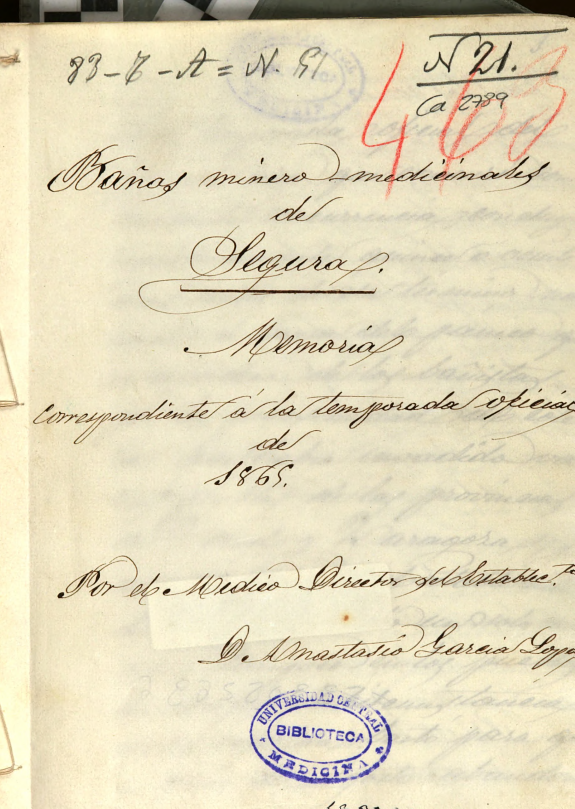 83-6-A=N 51
N 21.
Ca 2789
463
Baños minero-medicinales
de
Segura.
Memoria
correspondiente á la temporada oficial
de
1865.
Por el Medico Director del Establec.to
D. Anastasio Garcia Lop
UNIVERSIDAD CENTRAL
BIBLIOTECA
MEDICINA